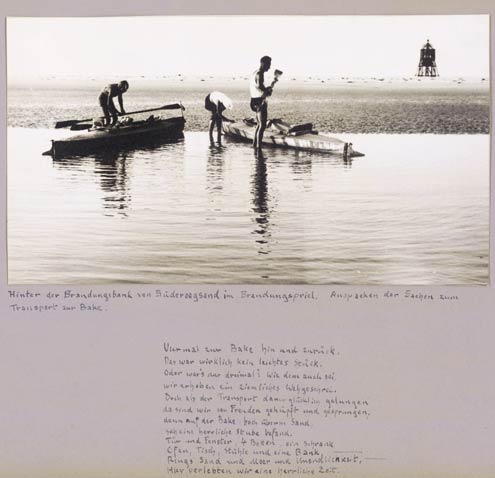 Hinter der Brandungsbank von Süderoogsand im Brandungspriel. Auspacken der Sachen zum
Transport zur Bake.
Viermal zur Bake hin und zurück.
Das war wirklich kein leichtes Stück.
Oder war's nur dreimal? Wie dem auch sei
wir erhoben ein ziemliches Wehgeschrei.
Doch als der Transport dann glücklich gelungen
da sind wir vor Freuden gehüpft und gesprungen,
denn auf der Bake hoch überm Sand,
sich eine herrliche Stube befand.
Tür und Fenster 4 Betten, ein Schrank
Ofen, Tisch, Stühle und eine Bank,
Rings Sand und Meer und Unendlichkeit,
Hier verlebten wir eine herrliche Zeit.